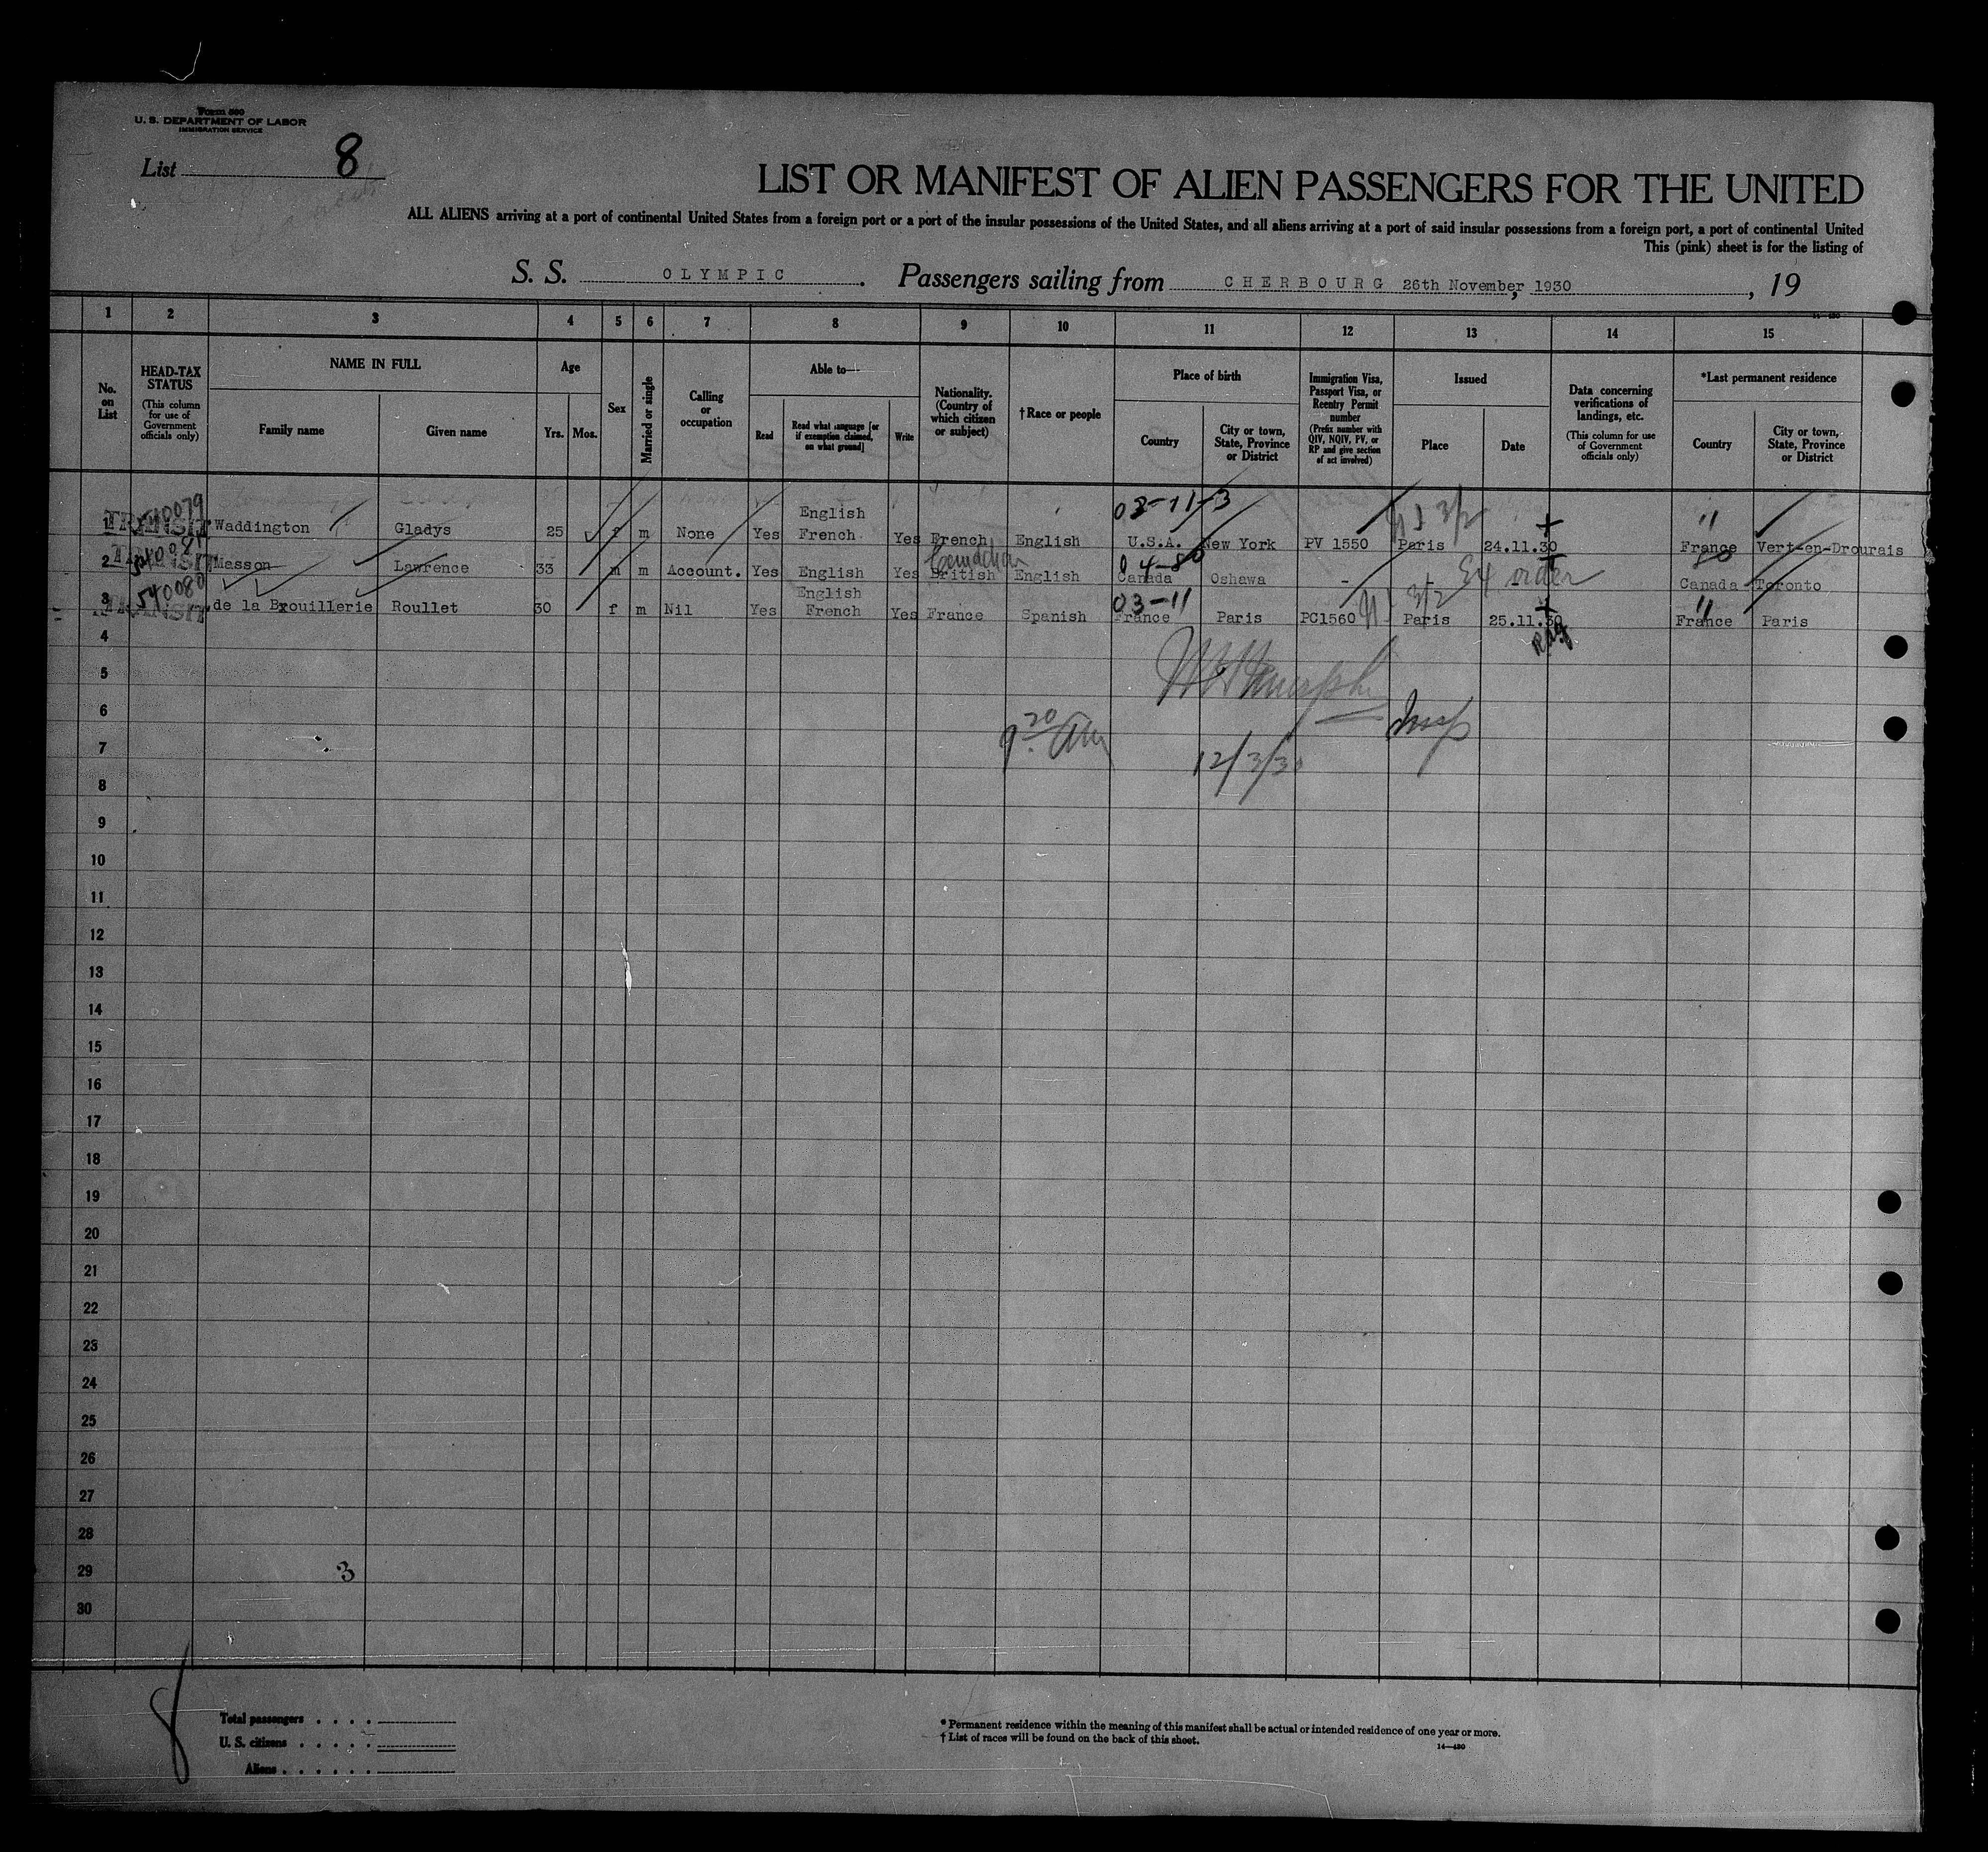 Form 500
U. S. DEPARTMENT OF LABOR
IMMIGRATION SERVICE
List 8
LIST OR MANIFEST OF ALIEN PASSENGERS FOR THE UNITED
ALL ALIENS arriving at a port of continental United States from a foreign port or a port of the insular possessions of the United States, and all aliens arriving at a port of said insular possessions from a foreign port, a port of continental United
This (pink) sheet is for the listing of
S. S. OLYMPIC. Passengers sailing from CHERBOURG 26th November, 1930, 19
1 2 3 4 5 6 7 8 9 10 11 12 13 14 15
No. on List
HEAD-TAX STATUS (This column for use of Government officials only)
NAME IN FULL
Family name
Given name
Age
Yrs. Mos.
Sex
Married or single
Calling or occupation
Able to—
Read
Read what language [or if exemption claimed, on what ground]
Write
Nationality. (Country of which citizen or subject)
†Race or people
Place of birth
Country
City or town, State, Province or District
Immigration Visa, Passport Visa, or Reentry Permit number
(Prefix number with QIV, NQIV, PV, or RP and give section of act involved)
Issued
Place
Date
Data concerning verifications of landings, etc.
(This column for use of Government officials only)
*Last permanent residence
Country
City or town, State, Province or District
03-11-3
1 TRANSIT 540079 Waddington Gladys 25 f m None Yes English French Yes French English U.S.A. New York PV 1550 3/2 Paris 24.11.30 France Vert-en-Drourais
Canadian 04-80 80
2 TRANSIT 540081 Masson Lawrence 33 m m Account. Yes English Yes British English Canada Oshawa - - Ex order Canada Toronto
03-11
3 TRANSIT 540080 de la Brouillerie Roullet 30 f m Nil Yes English French Yes France Spanish France Paris PC1560 3/2 Paris 25.11.30 France Paris
4
5
Murphy
6
Insp
9 20 AM
7
12/3/30
8
9
10
11
12
13
14
15
16
17
18
19
20
21
22
23
24
25
26
27
28
29 3
30
8
Total passengers . . . .
U. S. citizens . . . . .
Aliens . . . . . .
* Permanent residence within the meaning of this manifest shall be actual or intended residence of one year or more.
† List of races will be found on the back of this sheet.
14—480